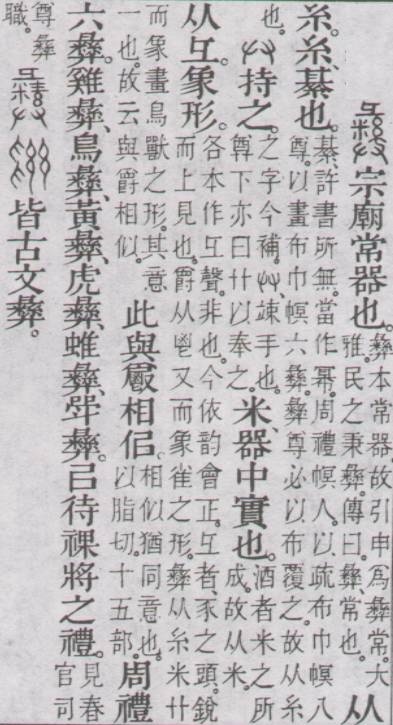 宗廟常器也。彝本常器。故引申爲彝常。大雅。民之秉彝。傳曰。彝、常也。从
糸。糸、綦也。綦許書所無。當作冪。周禮幎人。以疏布巾幎八尊。以畫布巾幎六彝。彝尊必以布覆之。故从糸
也。廾持之。之字今補。廾、竦手也。尊下亦曰廾以奉之。米、器中實也。酒者米之所成。故从米。
从彑。象形。各本作彑聲。非也。今依韵會正。彑者、豕之頭。銳而上見也。爵从鬯又而象雀之形。彝从糸米廾
而象畫鳥獸之形。其意一也。故云與爵相似。此與爵相佀。相似猶同意也。以脂切。十五部。周禮
六彝。雞彝、鳥彝、黃彝、虎彝、蜼彝、斝彝。㠯待祼將之禮。見春官司
尊彝職。皆古文彝。